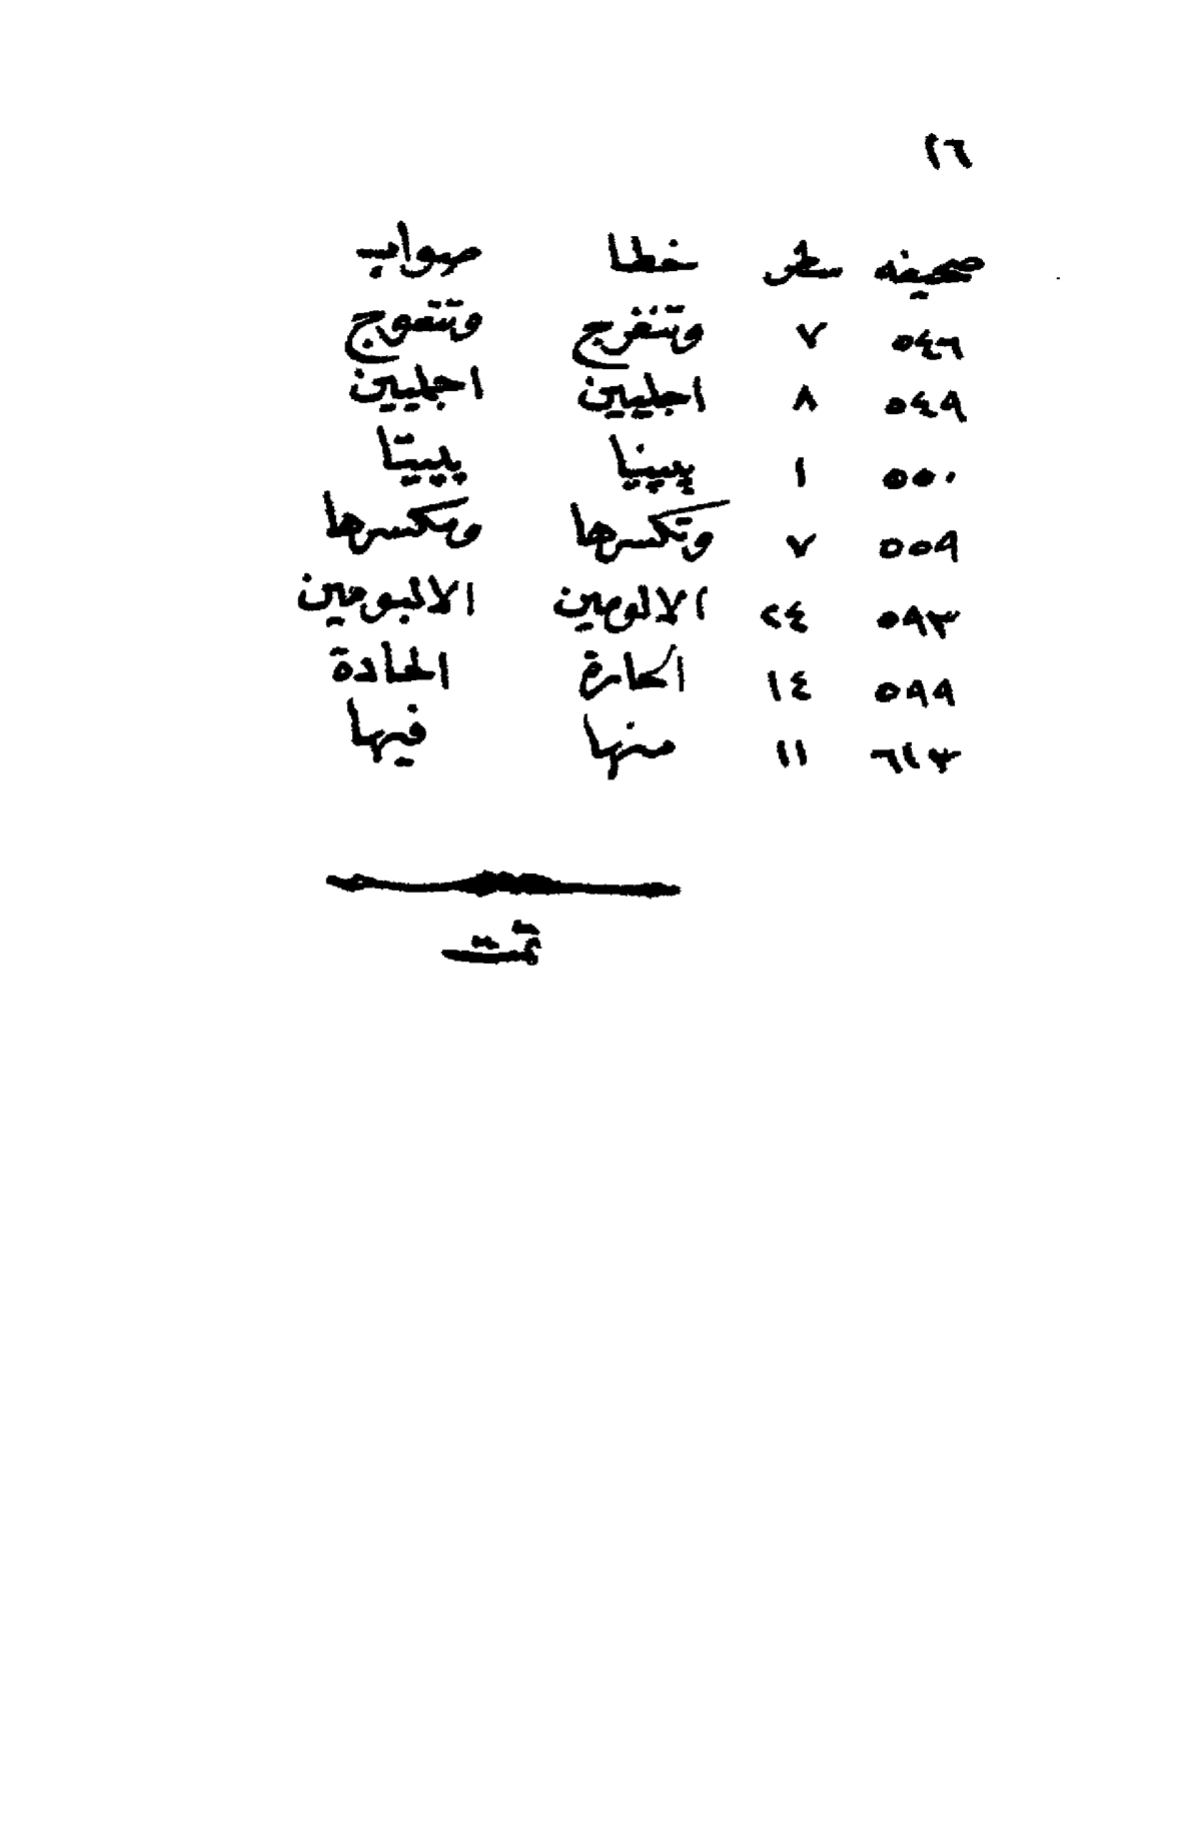 ٢٦
صحيفه سطر خطا صواب
٥٤٦ ٧ وتنفرج وتتموج
٥٤٩ ٨ اجليين اجليين
٥٥٠ ١ پيپنيا پيپيتا
٥٥٩ ٧ وتكسرها ومكسرها
٥٩٣ ٢٤ الالومين الالبومين
٥٩٩ ١٤ الحارة الحادة
٦١٣ ١١ منها فيها
تمت